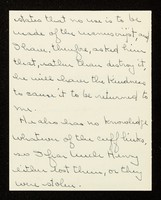 states that no use is to be
made of the manuscript, and
I have, therefore, asked him
that, rather than destroy it,
he will have the kindness
to cause it to be returned to
me.
He also has no knowledge
whatever of the cuff links,
so I fear Uncle Henry
either lost them, or they
were stolen.